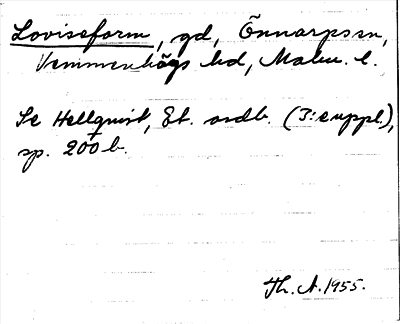 Loviseform, gd, Önnarps sn,
Vemmenhögs hd, Malm. l.
Se Hellquist, Et. ordb. (3:e uppl.),
sp. 200 b.
Th. A. 1955.